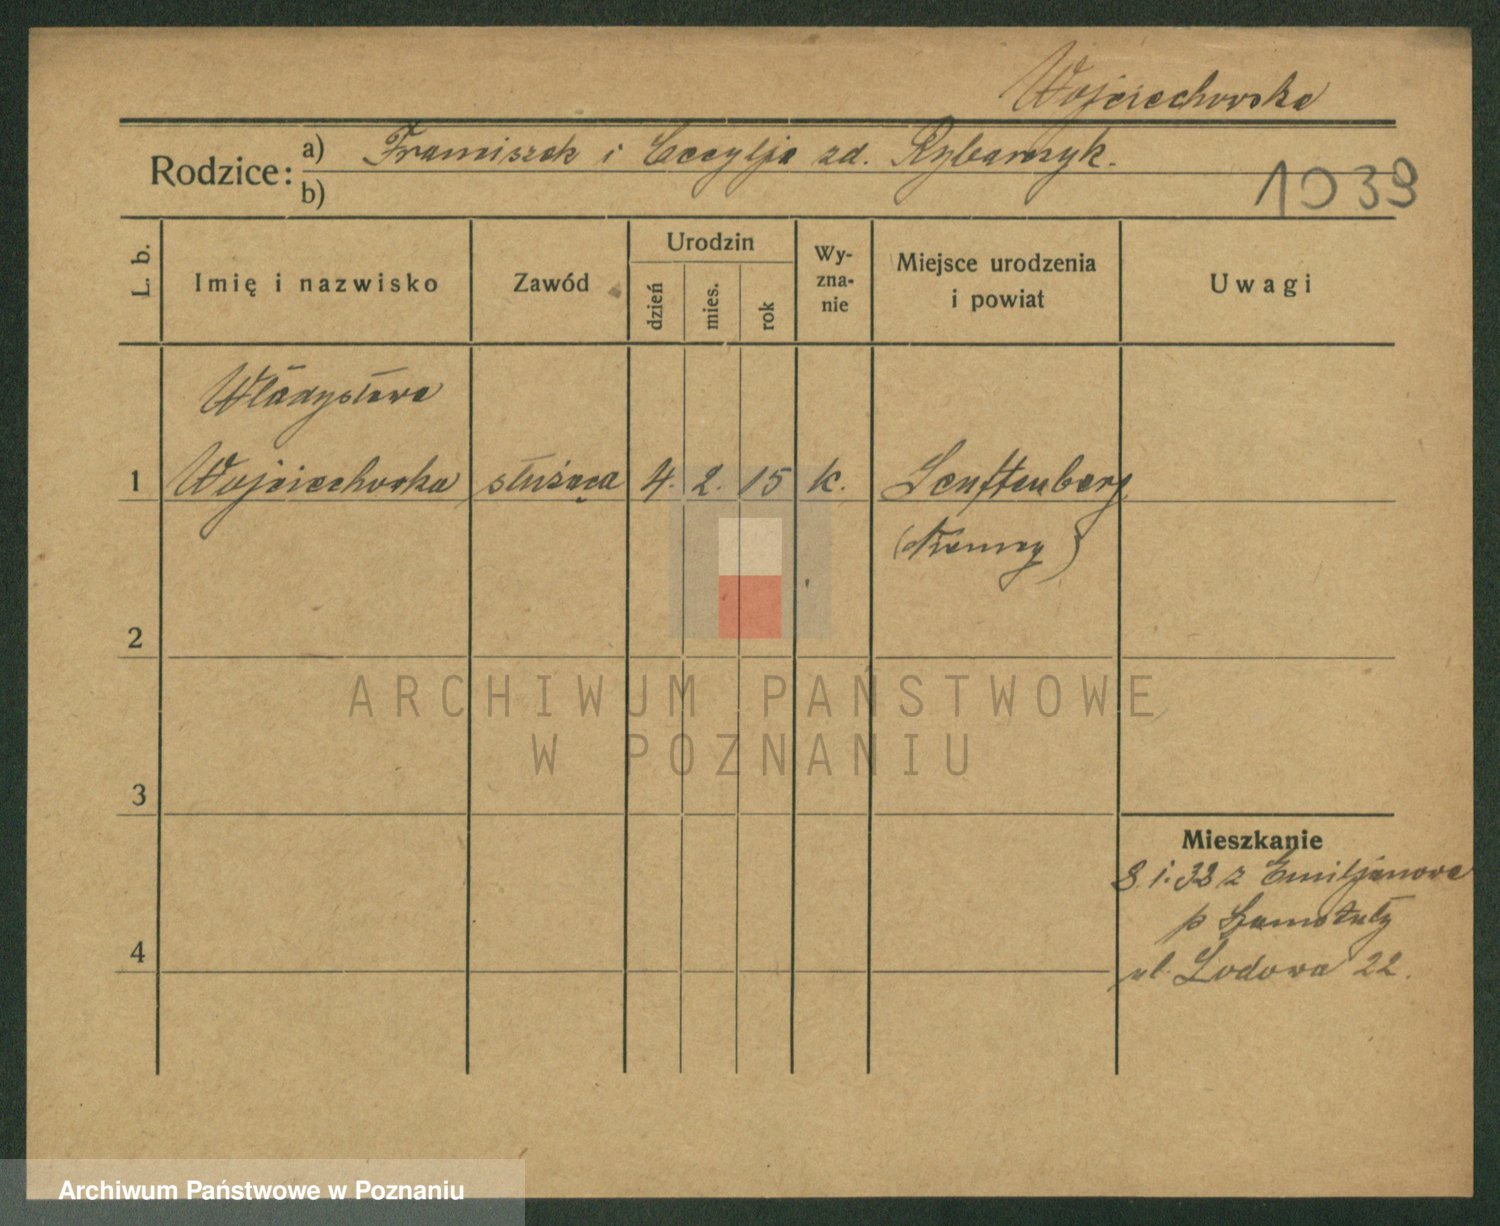 Wojciechowska
Rodzice: a) Franciszek i Cecylja zd. Rybarczyk.
b)
1039
L. b.
Imię i nazwisko
Zawód
Urodzin
dzień
mies.
rok
Wy-
zna-
nie
Miejsce urodzenia
i powiat
Uwagi
Władysława
1 Wojciechowska służąca 4. 2. 15 k. Senftenberg
(Niemcy)
2
ARCHIWUM PAŃSTWOWE
W POZNANIU
3
Mieszkanie
8.1.38 z Emiljanowa
p Szamotuły
4
ul. Lodowa 22.
Archiwum Państwowe w Poznaniu